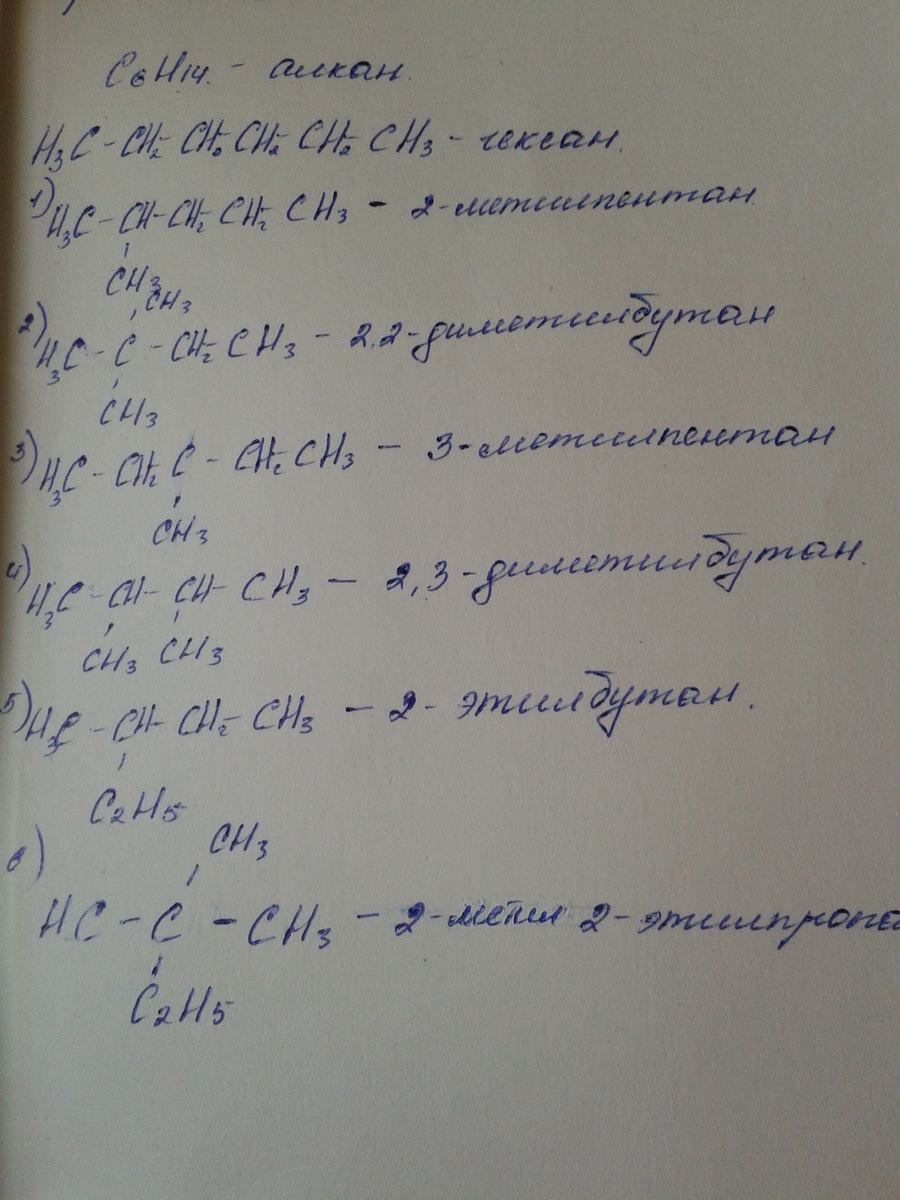 C6H14. - алкан.
H3C - CH2- CH2 CH2- CH2 CH3 - гексан.
1) H3C - CH- CH2- CH2- CH3 - 2-метилпентан
CH3
CH3
2) H3C - C - CH2- CH3 - 2.2-диметилбутан
CH3
3) H3C - CH2- C - CH2- CH3 - 3-метилпентан
CH3
4) H3C - CH- CH- CH3 - 2,3-диметилбутан.
CH3 CH3
5) H3C - CH- CH2- CH3 - 2- этилбутан.
C2H5
6) CH3
HC - C - CH3 - 2-метил 2-этилпропа
C2H5